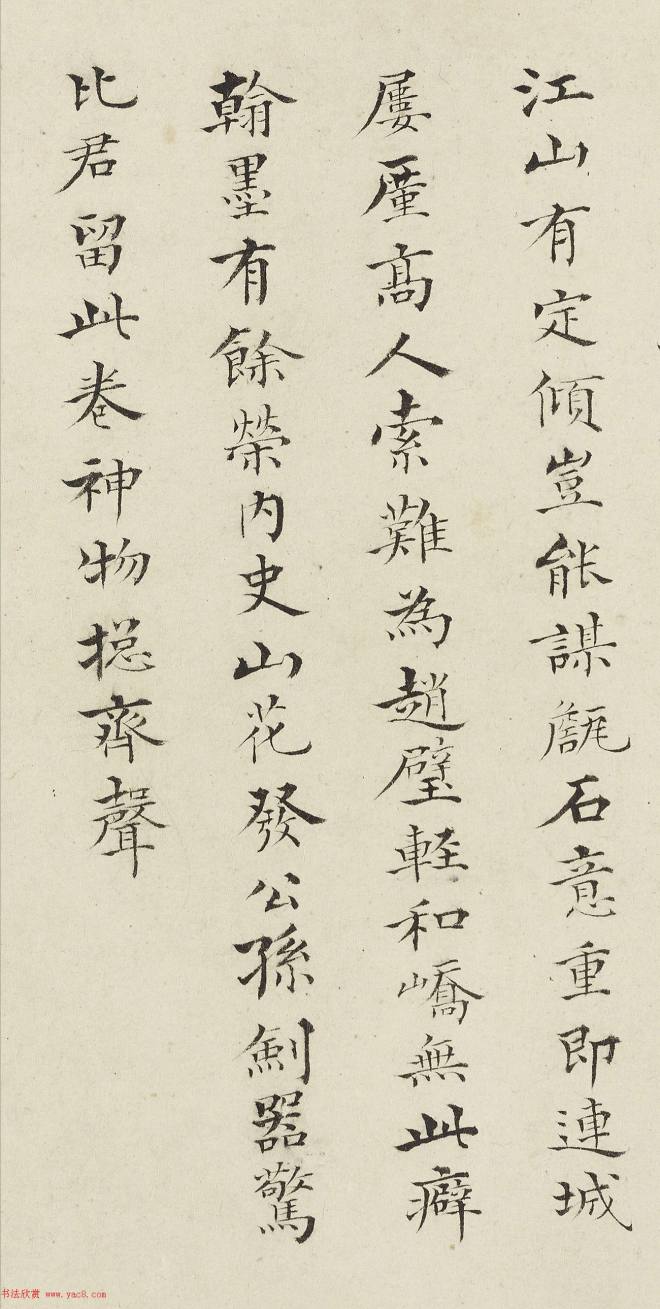 江山有定傾豈能謀甔石意重即連城
屢厪高人索難為趙璧軽和嶠無此癖
翰墨有餘榮内史山花發公孫劍器驚
比君留此卷神物揔齊聲
书法欣赏 www.yac8.com